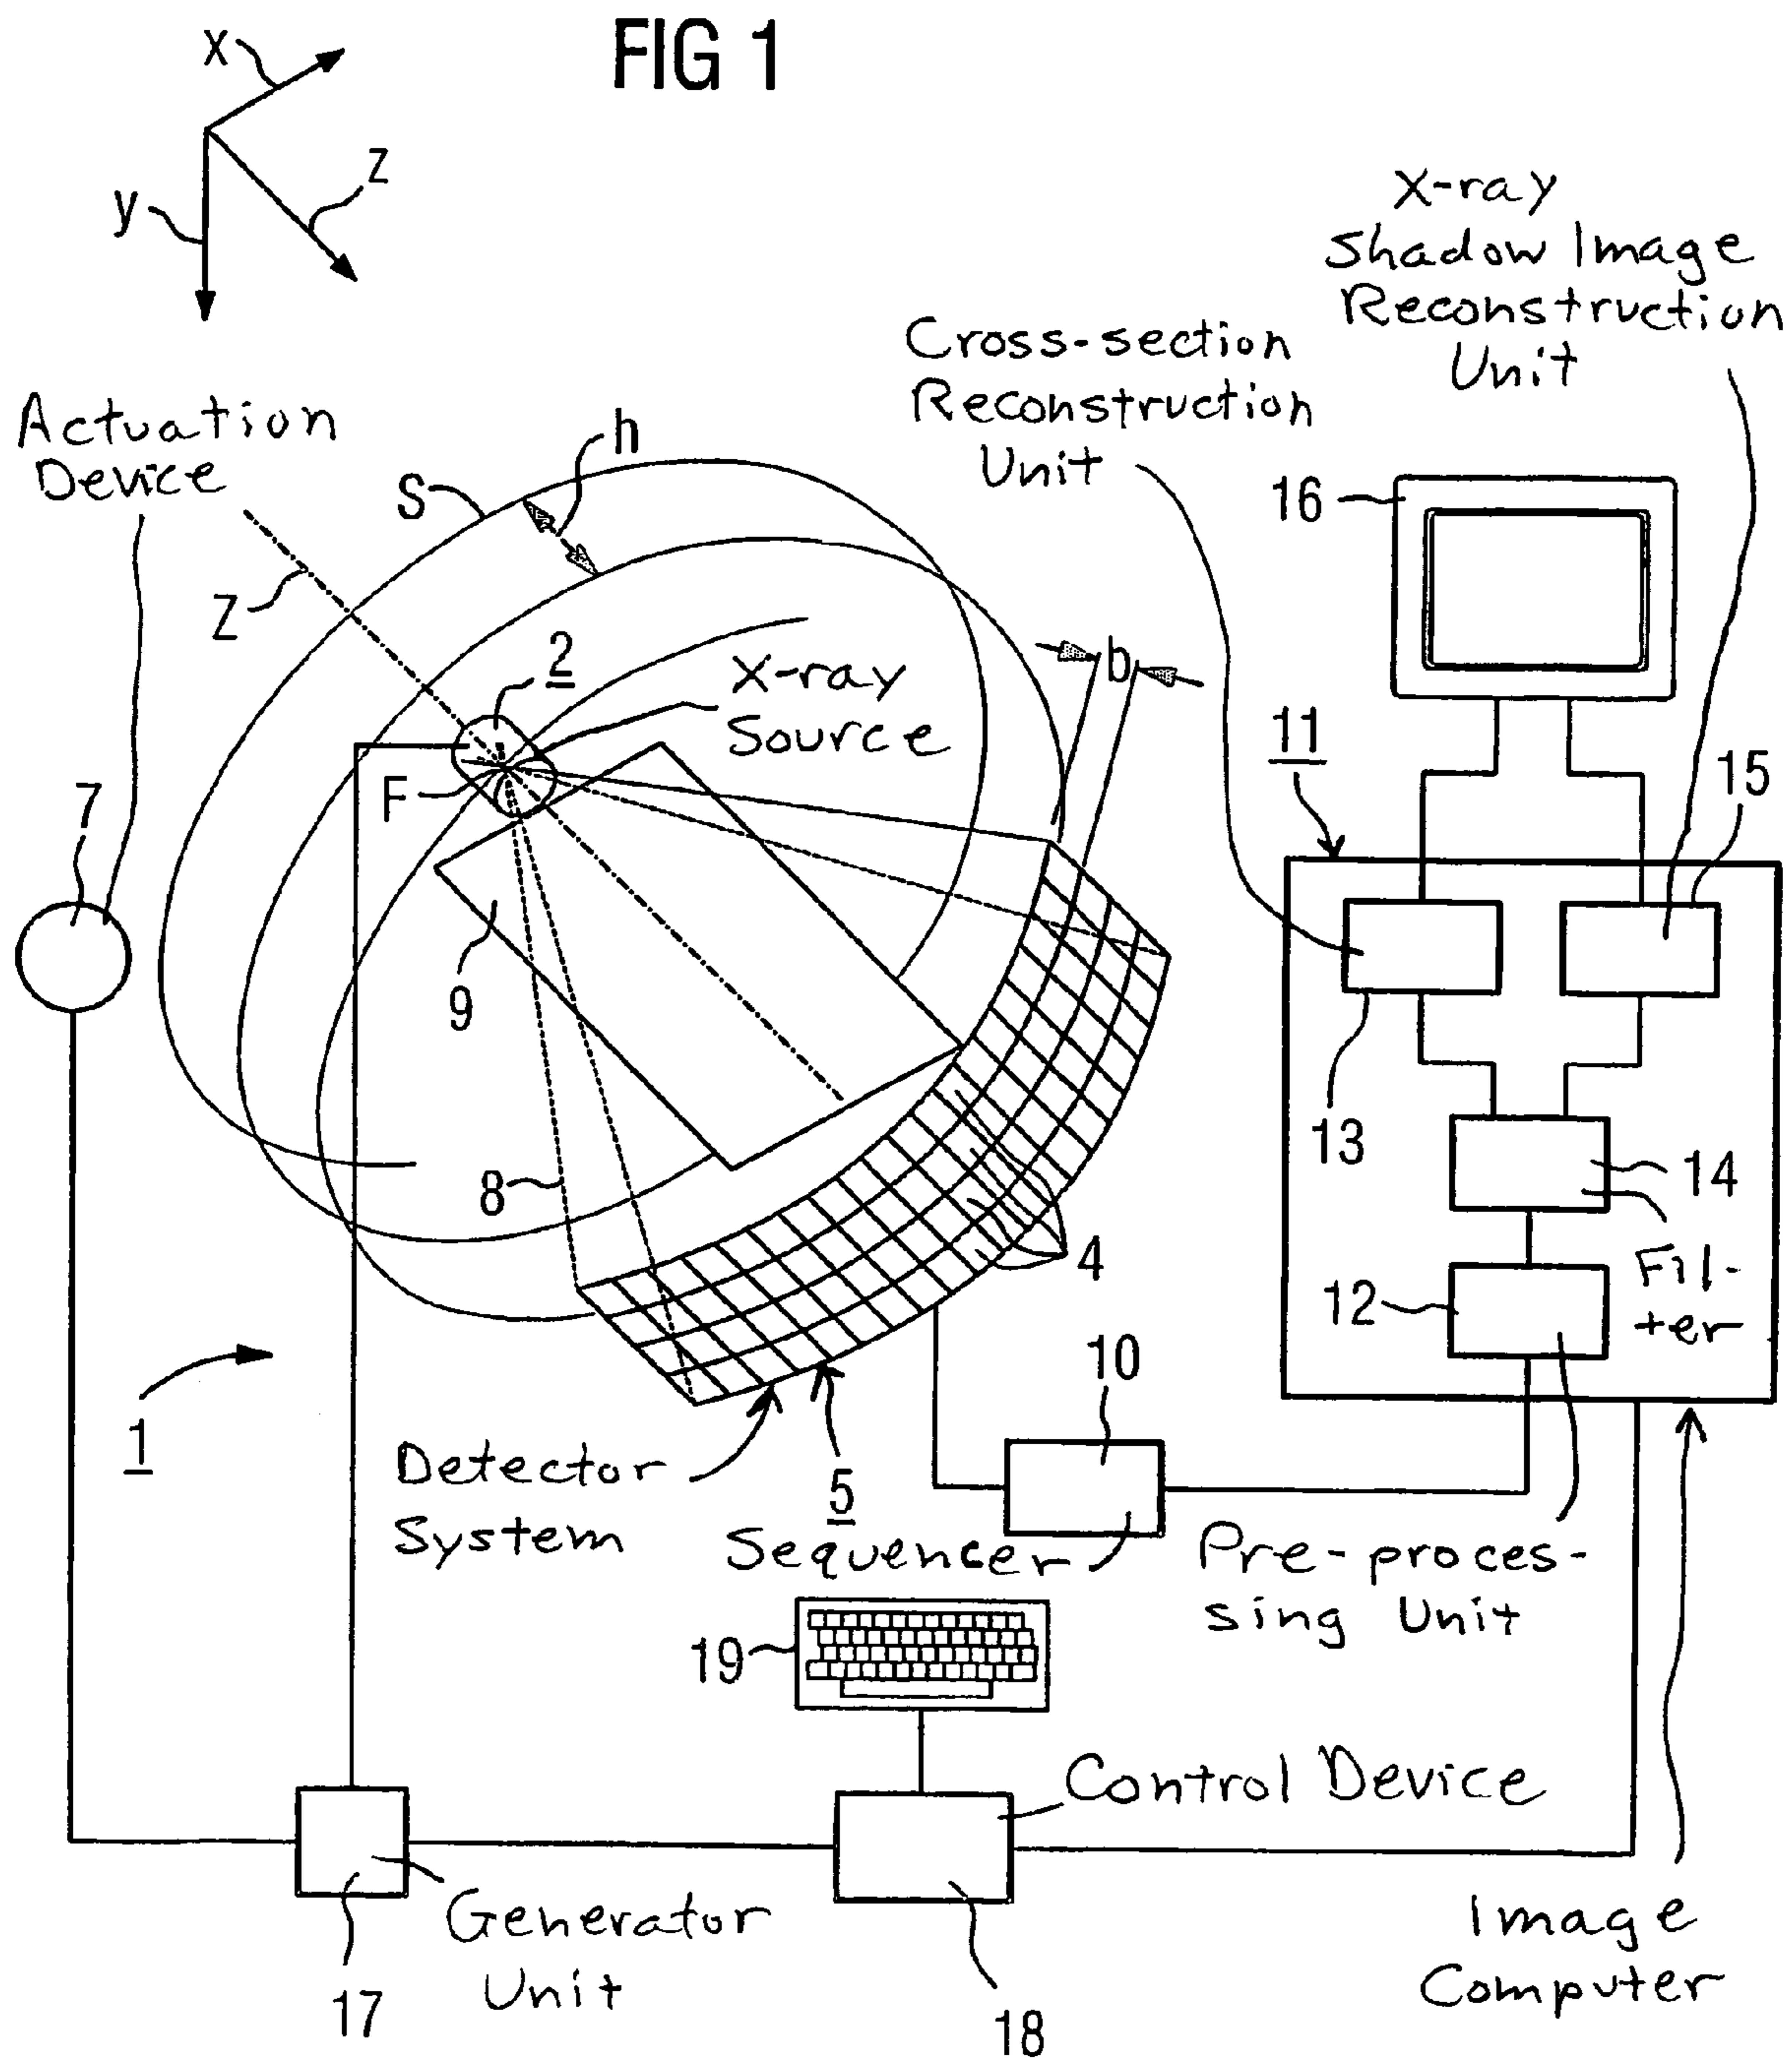 FIG 1
x
z
y
X-ray
Shadow Image
Reconstruction
Unit
Cross-section
Reconstruction
Unit
Actuation
Device
h
S
16
Z
2
X-ray
Source
b
11
15
F
7
9
13
8
14
4
Fil-
ter
12
10
1
Detector
System
5
Sequencer
Pre-proces-
sing Unit
19
Control Device
Generator
Unit
17
18
Image
Computer